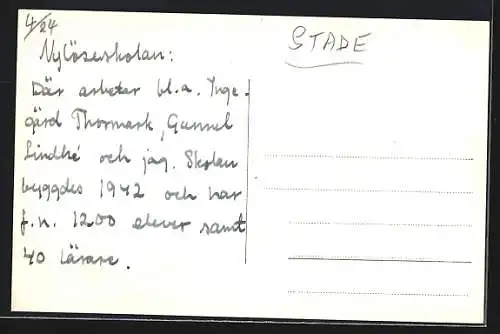 4/24
STADE
Nylöseskolan:
Där arbetar bl.a. Inge-
gärd Thormark, Gunnel
Lindhé och jag. Skolan
byggdes 1942 och har
f.n. 1200 elever samt
40 lärare.